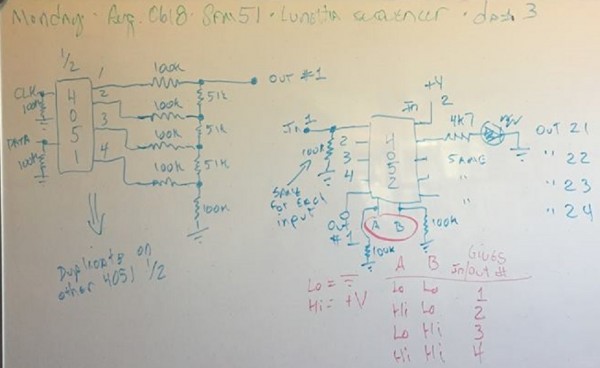 Monday · Aug. 0618 · 8pm51 · Lunetta sequencer · dot. 3
1/2
CLK
100k
DATA
100k
4051
1
2
3
4
100k
100k
100k
100k
51k
51k
51k
100k
OUT #1
Duplicate on
other 4051 1/2
+V
In
2
In 1
2
3
4
100k
same
for each
input
4052
4K7
OUT 21
SAME
" 22
" " 23
" " 24
Out
#1
A B
100k
100k
Lo =
Hi = +V
A B Gives
In/Out #
Lo Lo 1
Hi Lo 2
Lo Hi 3
Hi Hi 4